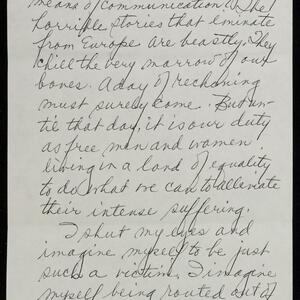 means of communication. The
horrible stories that eminate
from Europe are beastly. They
chill the very marrow of our
bones. A day of reckoning
must surely come. But un-
til that day, it is our duty
as free men and women
living in a land of equality
to do what we can to allevate
their intense suffering.
I shut my eyes and
imagine myself to be just
such a victim. I imagine
myself being routed out of